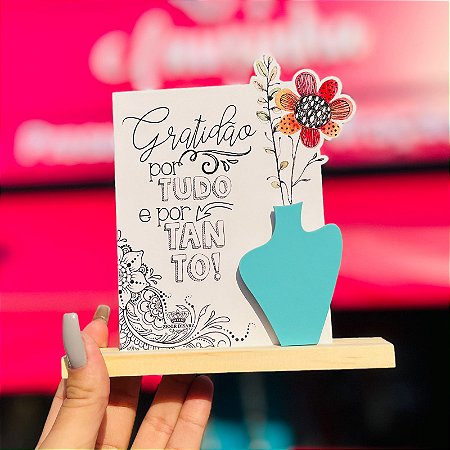 Gratidão
por
TUDO
e por
TAN
TO!